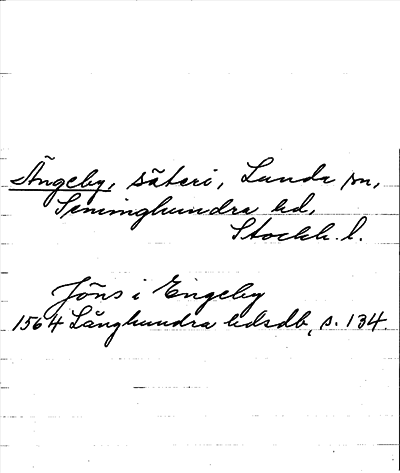 Ängeby, säteri, Lunda sn,
Seminghundra hd,
Stockh. l.
Jöns i Engeby
1564 Långhundra hdsdb, s. 134.